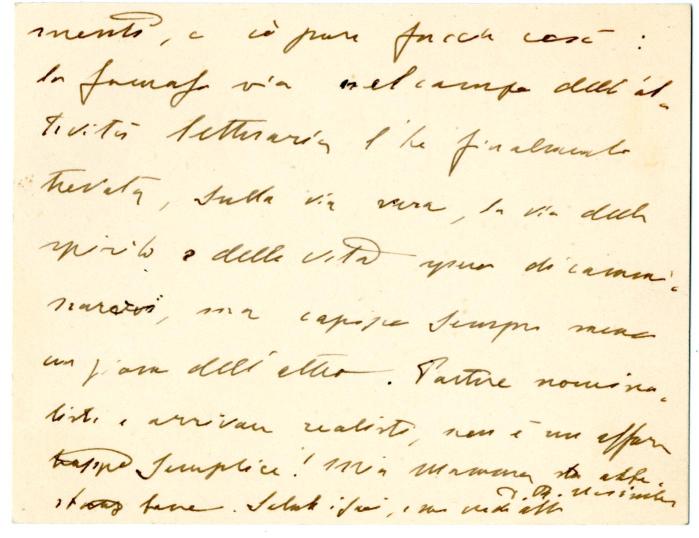 mento, e ciò pure faccia così:
la famosa via nel campo dell'at-
tività letteraria l'ho finalmente
trovata, sulla via vera, la via dello
spirito e della vita spero di cammi-
narci, ma capisco sempre meno
un giorno dell'altro. Partire nomina-
listi e arrivare realisti, non è un affare
semplice! Mia mamma sta abba-
stanza bene. Saluti i Suoi, e